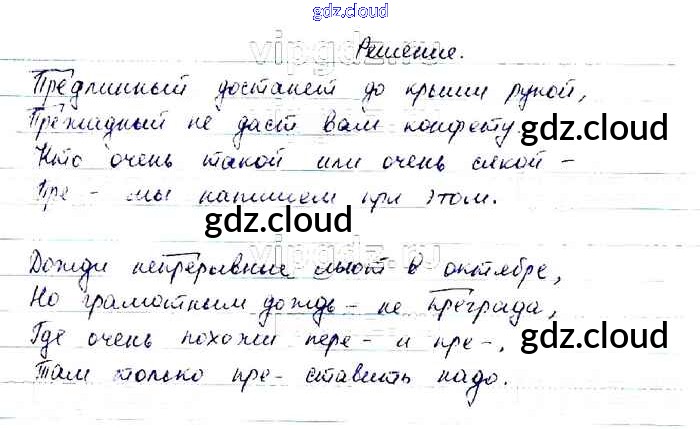 gdz.cloud
vipgdz.ru
Решение.
Предлинный достанет до крыши рукой,
Прежадный не даст вам конфету.
gdz.cloud
Кто очень такой или очень сякой –
Пре – мы напишем при этом.
gdz.cloud
vipgdz.ru
Дожди непрерывные льют в октябре,
Но грамотным дождь – не преграда,
Где очень похожи пере – и пре –,
gdz.cloud
Там только пре – ставить надо.